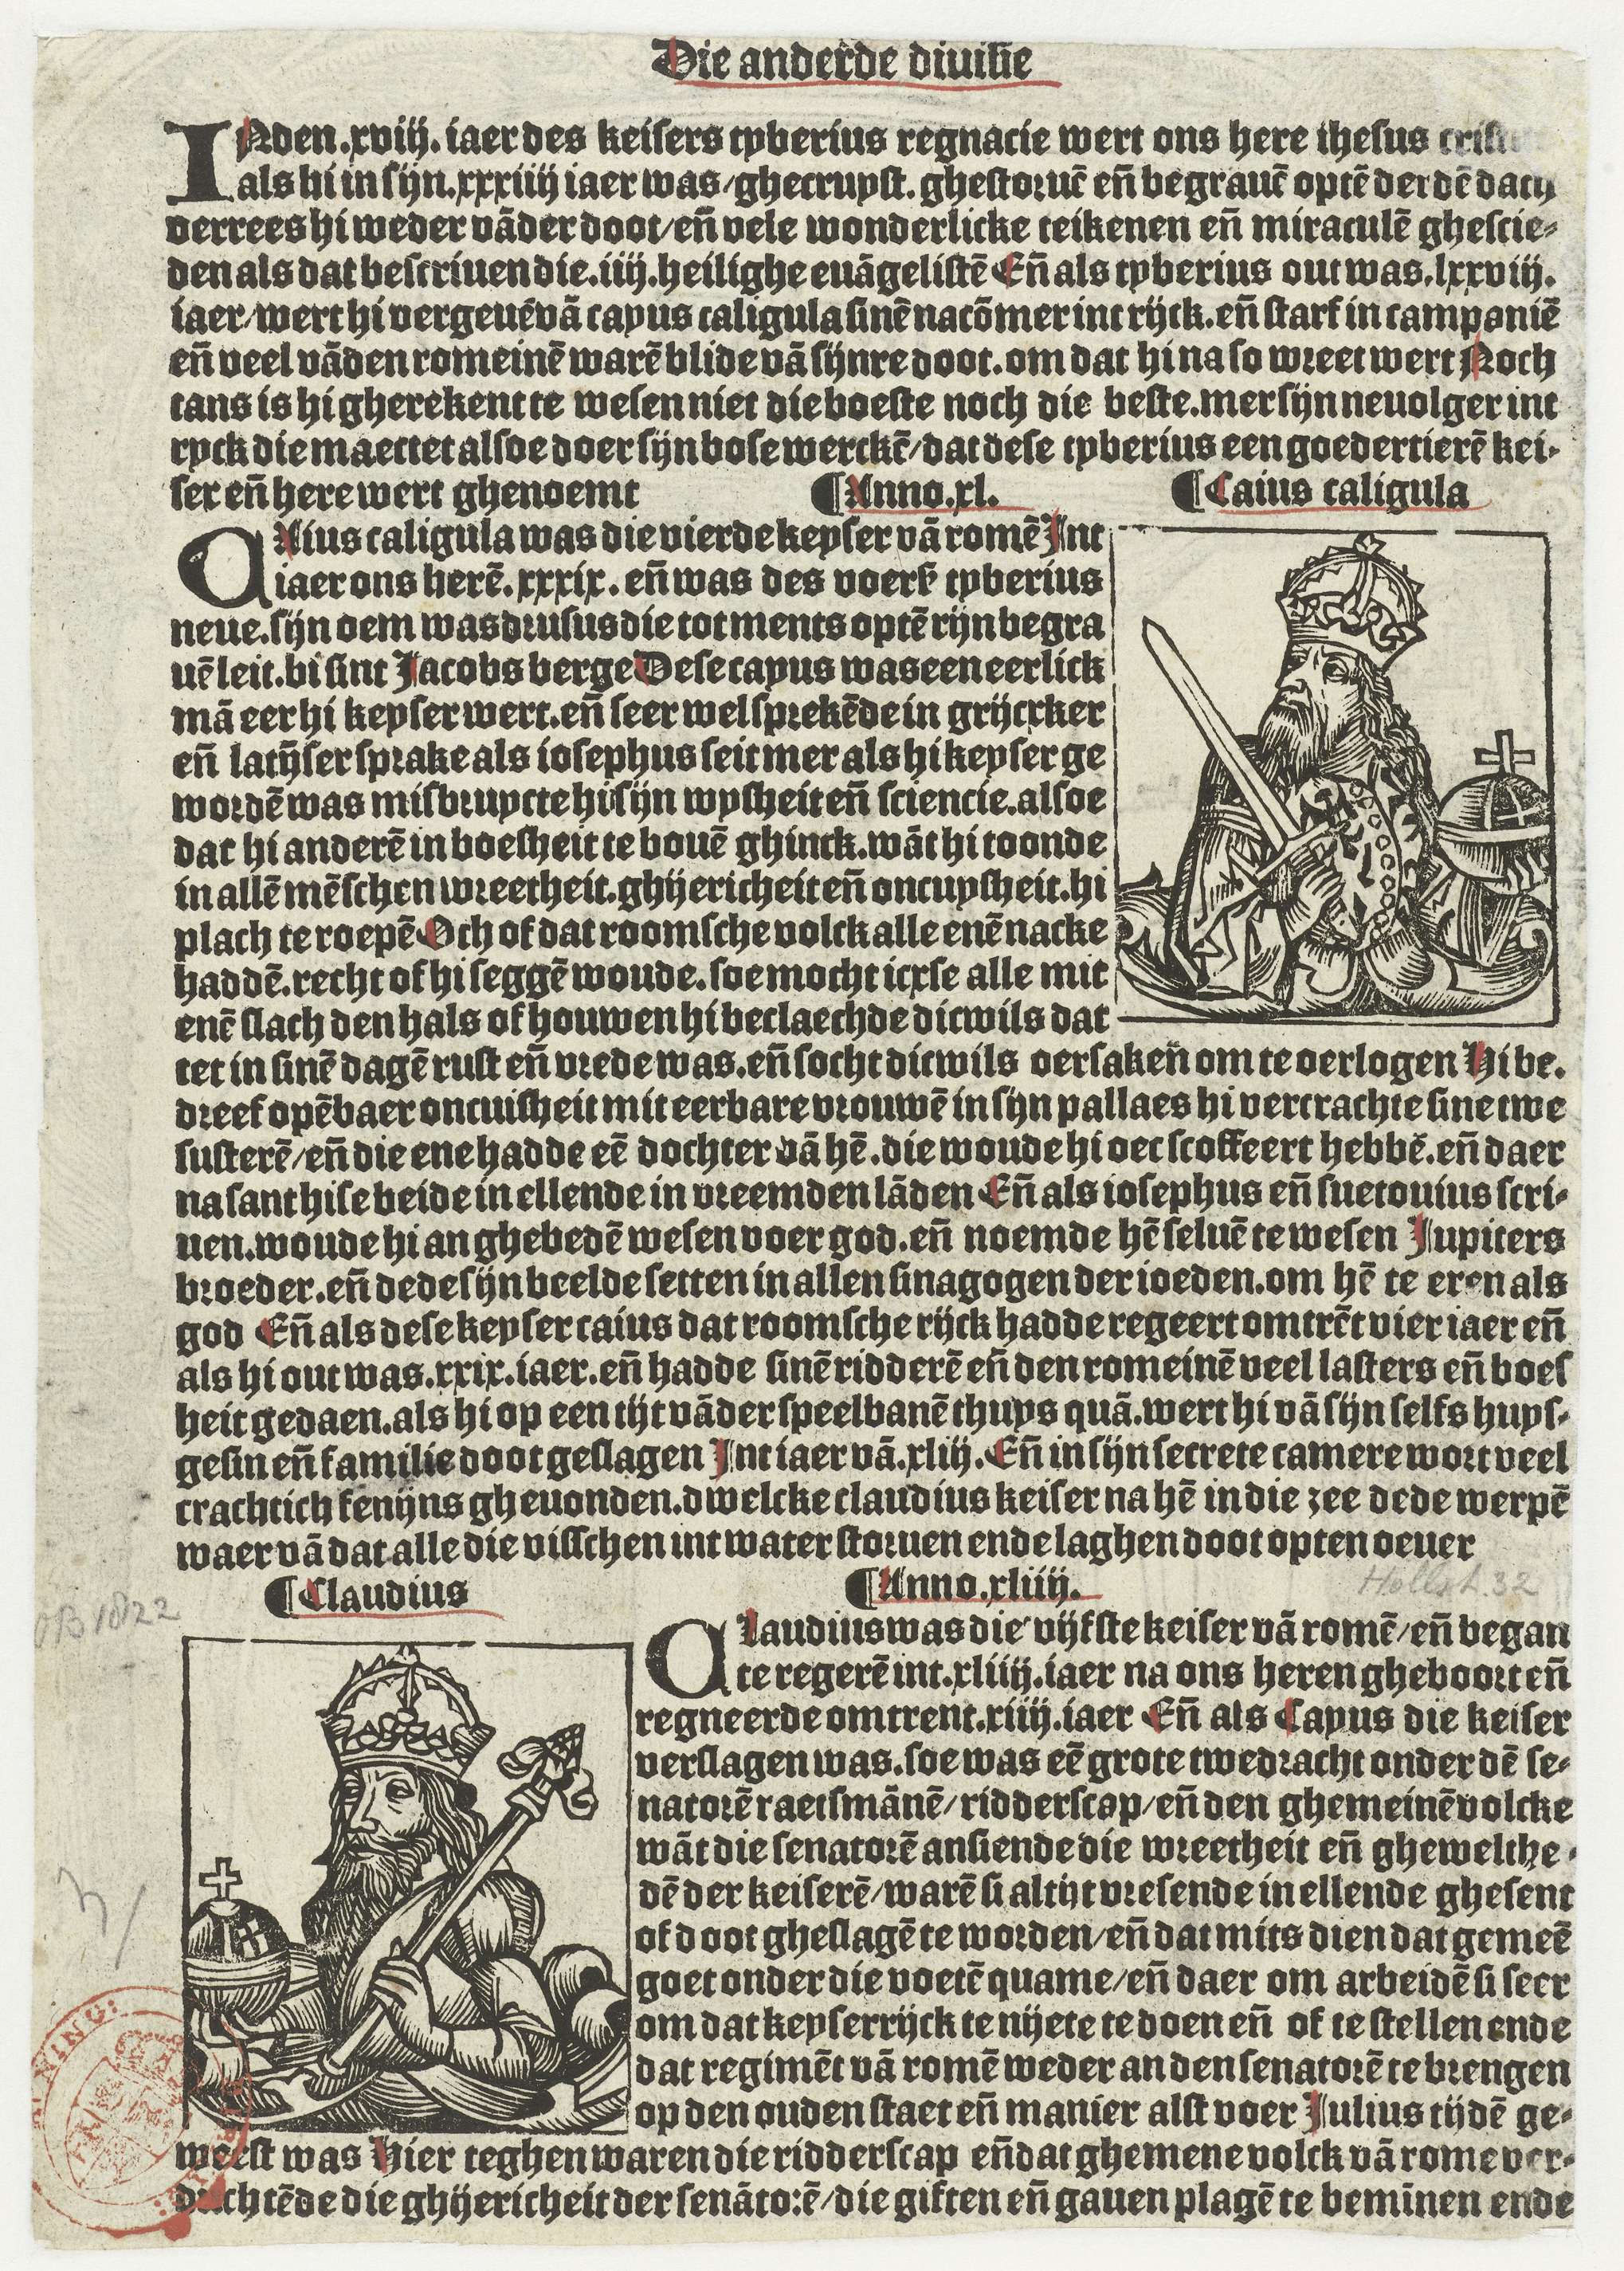 Die anderde diuisie
INden.xviij.iaer des keisers tyberius regnacie wert ons here ihesus
als hi in sijn.xxxiiij iaer was/ghecruyst.ghestoruē en̄ begrauē optē derdē dach
verrees hi weder vāder doot/en̄ vele wonderlicke teikenen en̄ miraculē ghescie⸗
den als dat bescriuen die.iiij.heilighe euāgelistē En̄ als tyberius out was.lxxviij.
iaer/wert hi vergeuē vā cayus caligula sinē nacōmer int rijck.en̄ starf in campaniē
en̄ veel vāden romeinē warē blide vā sijnre doot.om dat hi na so wreet wert Noch
tans is hi gherekent te wesen niet die boeste noch die beste.mer sijn neuolger int
ryck die maectet alsoe doer sijn bose werckē/dat dese tyberius een goedertierē kei⸗
ser en̄ here wert ghenoemt
¶Anno.xl.
¶Caius caligula
CAius caligula was die vierde keyser vā romē Int
iaer ons herē.xxxix.en̄ was des voerš tyberius
neue.sijn oem was drusus die tot ments optē rijn begra
uē leit.bi sint Jacobs berge Dese cayus was een eerlick
mā eer hi keyser wert.en̄ seer wel sprekēde in grijcxker
en̄ latijser sprake als iosephus seit mer als hi keyser ge
wordē was misbruycte hi sijn wysheit en̄ sciencie.alsoe
dat hi anderē in boesheit te bouē ghinck.wāt hi toonde
in allē mēschen wreetheit.ghijericheit en̄ oncuysheit.hi
plach te roepē Och of dat roomsche volck alle enē nacke
haddē.recht of hi seggē woude.soe mocht icxse alle mit
enē slach den hals of houwen hi beclaechde dicwils dat
tet in sinē dagē rust en̄ vrede was.en̄ socht dicwils oersaken̄ om te oerlogen Hi be.
dreef opēbaer oncuisheit mit eerbare vrouwē in sijn pallaes hi vercrachte sine twe
susterē/en̄ die ene hadde eē dochter vā hē.die woude hi oec scoffeert hebbē.en̄ daer
na sant hise beide in ellende in vreemden lāden En̄ als iosephus en̄ suetouius scri⸗
uen.woude hi an ghebedē wesen voer god.en̄ noemde hē seluē te wesen Jupiters
broeder.en̄ dede sijn beelde setten in allen sinagogen der ioeden.om hē te eren als
god En̄ als dese keyser caius dat roomsche rijck hadde regeert omtrēt vier iaer en̄
als hi out was.xxix.iaer.en̄ hadde sinē ridderē en̄ den romeinē veel lasters en̄ boes
heit gedaen.als hi op een tijt vāder speelbanē thuys quā.wert hi vā sijn selfs huys⸗
gesin en̄ familie doot geslagen Int iaer vā.xliij.En̄ in sijn secrete camere wort veel
crachtich fenijns gheuonden.dwelcke claudius keiser na hē in die zee dede werpē
waer vā dat alle die visschen int water storuen ende laghen doot opten oeuer
Hollst. 32
¶Claudius
¶Anno.xliiij.
OB 1822
CLaudius was die vijfste keiser vā romē/en̄ began
te regerē int.xliiij.iaer na ons heren gheboort en̄
regneerde omtrent.xiiij.iaer En̄ als Cayus die keiser
verslagen was.soe was eē grote twedracht onder dē se⸗
natorē raetsmānē/ridderscap/en̄ den ghemeinē volcke
wāt die senatorē ansiende die wreetheit en̄ ghewelthe⸗
dē der keiserē/warē si altijt vresende in ellende ghesent
of doot gheslagē te worden/en̄ dat mits dien dat gemeē
goet onder die voetē quame/en̄ daer om arbeidē si seer
om dat keyserrijck te nijete te doen en̄ of te stellen ende
dat regimēt vā romē weder an den senatorē te brengen
op den ouden staet en̄ manier alst voer Julius tijdē ge⸗
weest was Hier teghen waren die ridderscap en̄ dat ghemene volck vā rome ver⸗
duchtēde die ghijericheit der senātorē/die giften en̄ gauen plagē te bemīnen ende